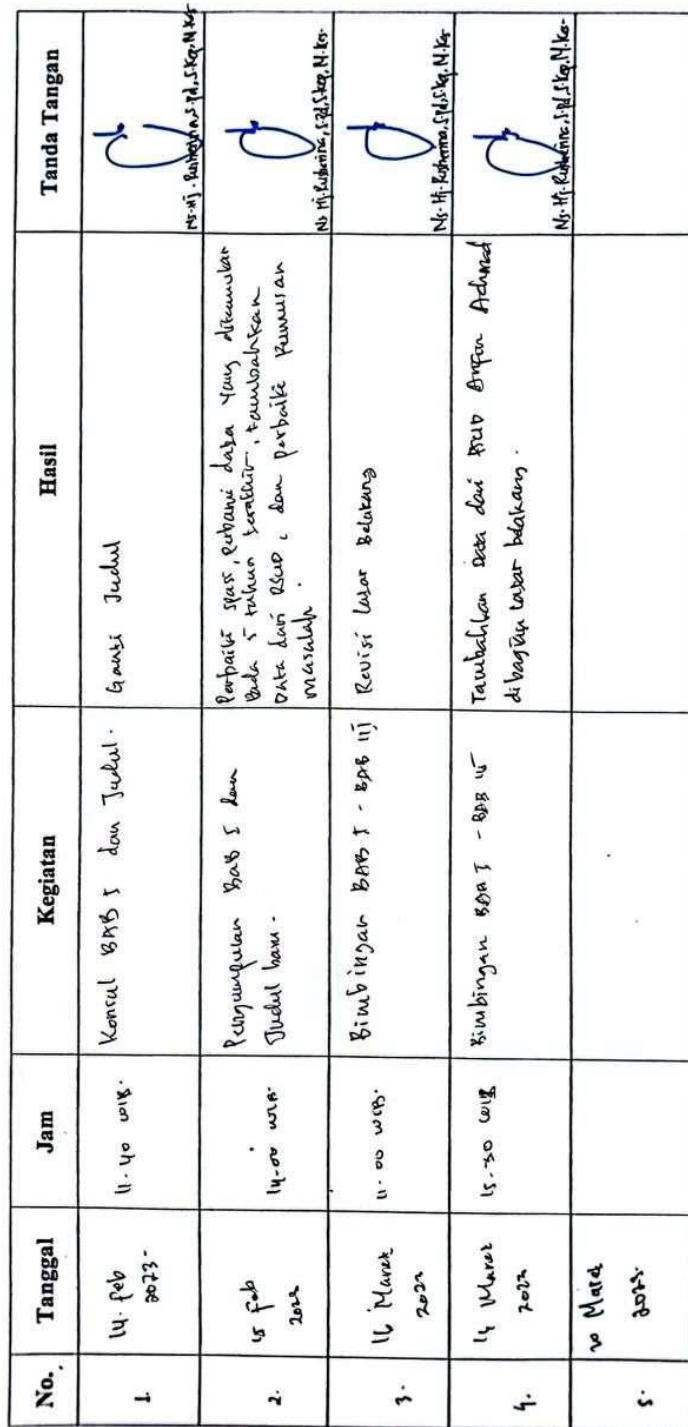 No. Tanggal Jam Kegiatan Hasil Tanda Tangan
1. 14. Feb 11.40 WIB. Konsul BAB I dan Judul. Ganti Judul
2023-
Ns. Hj. Rusherina, S.Pd, S.Kep, M.Kes
2. 15 Feb 14.00 WIB. Pengumpulan BAB I dan Perbaiki spasi, data yang dicantumkan
2023 Judul baru. Pada 5 tahun terakhir, tambahkan
Data dari RSUD, dan perbaiki Rumusan
masalah.
Ns. Hj. Rusherina, S.Pd, S.Kep, M.Kes.
3. Maret 11.00 WIB. Bimbingan BAB I - BAB III Revisi Latar Belakang
2023
Ns. Hj. Rusherina, S.Pd, S.Kep, M.Kes
4. Maret 15.30 WIB Bimbingan BAB I - BAB Tambahkan Data dari RSUD Arifin Achmad
2023 dibagian Latar belakang.
Ns. Hj. Rusherina, S.Pd, S.Kep, M.Kes-
5. 20 Maret
2023.